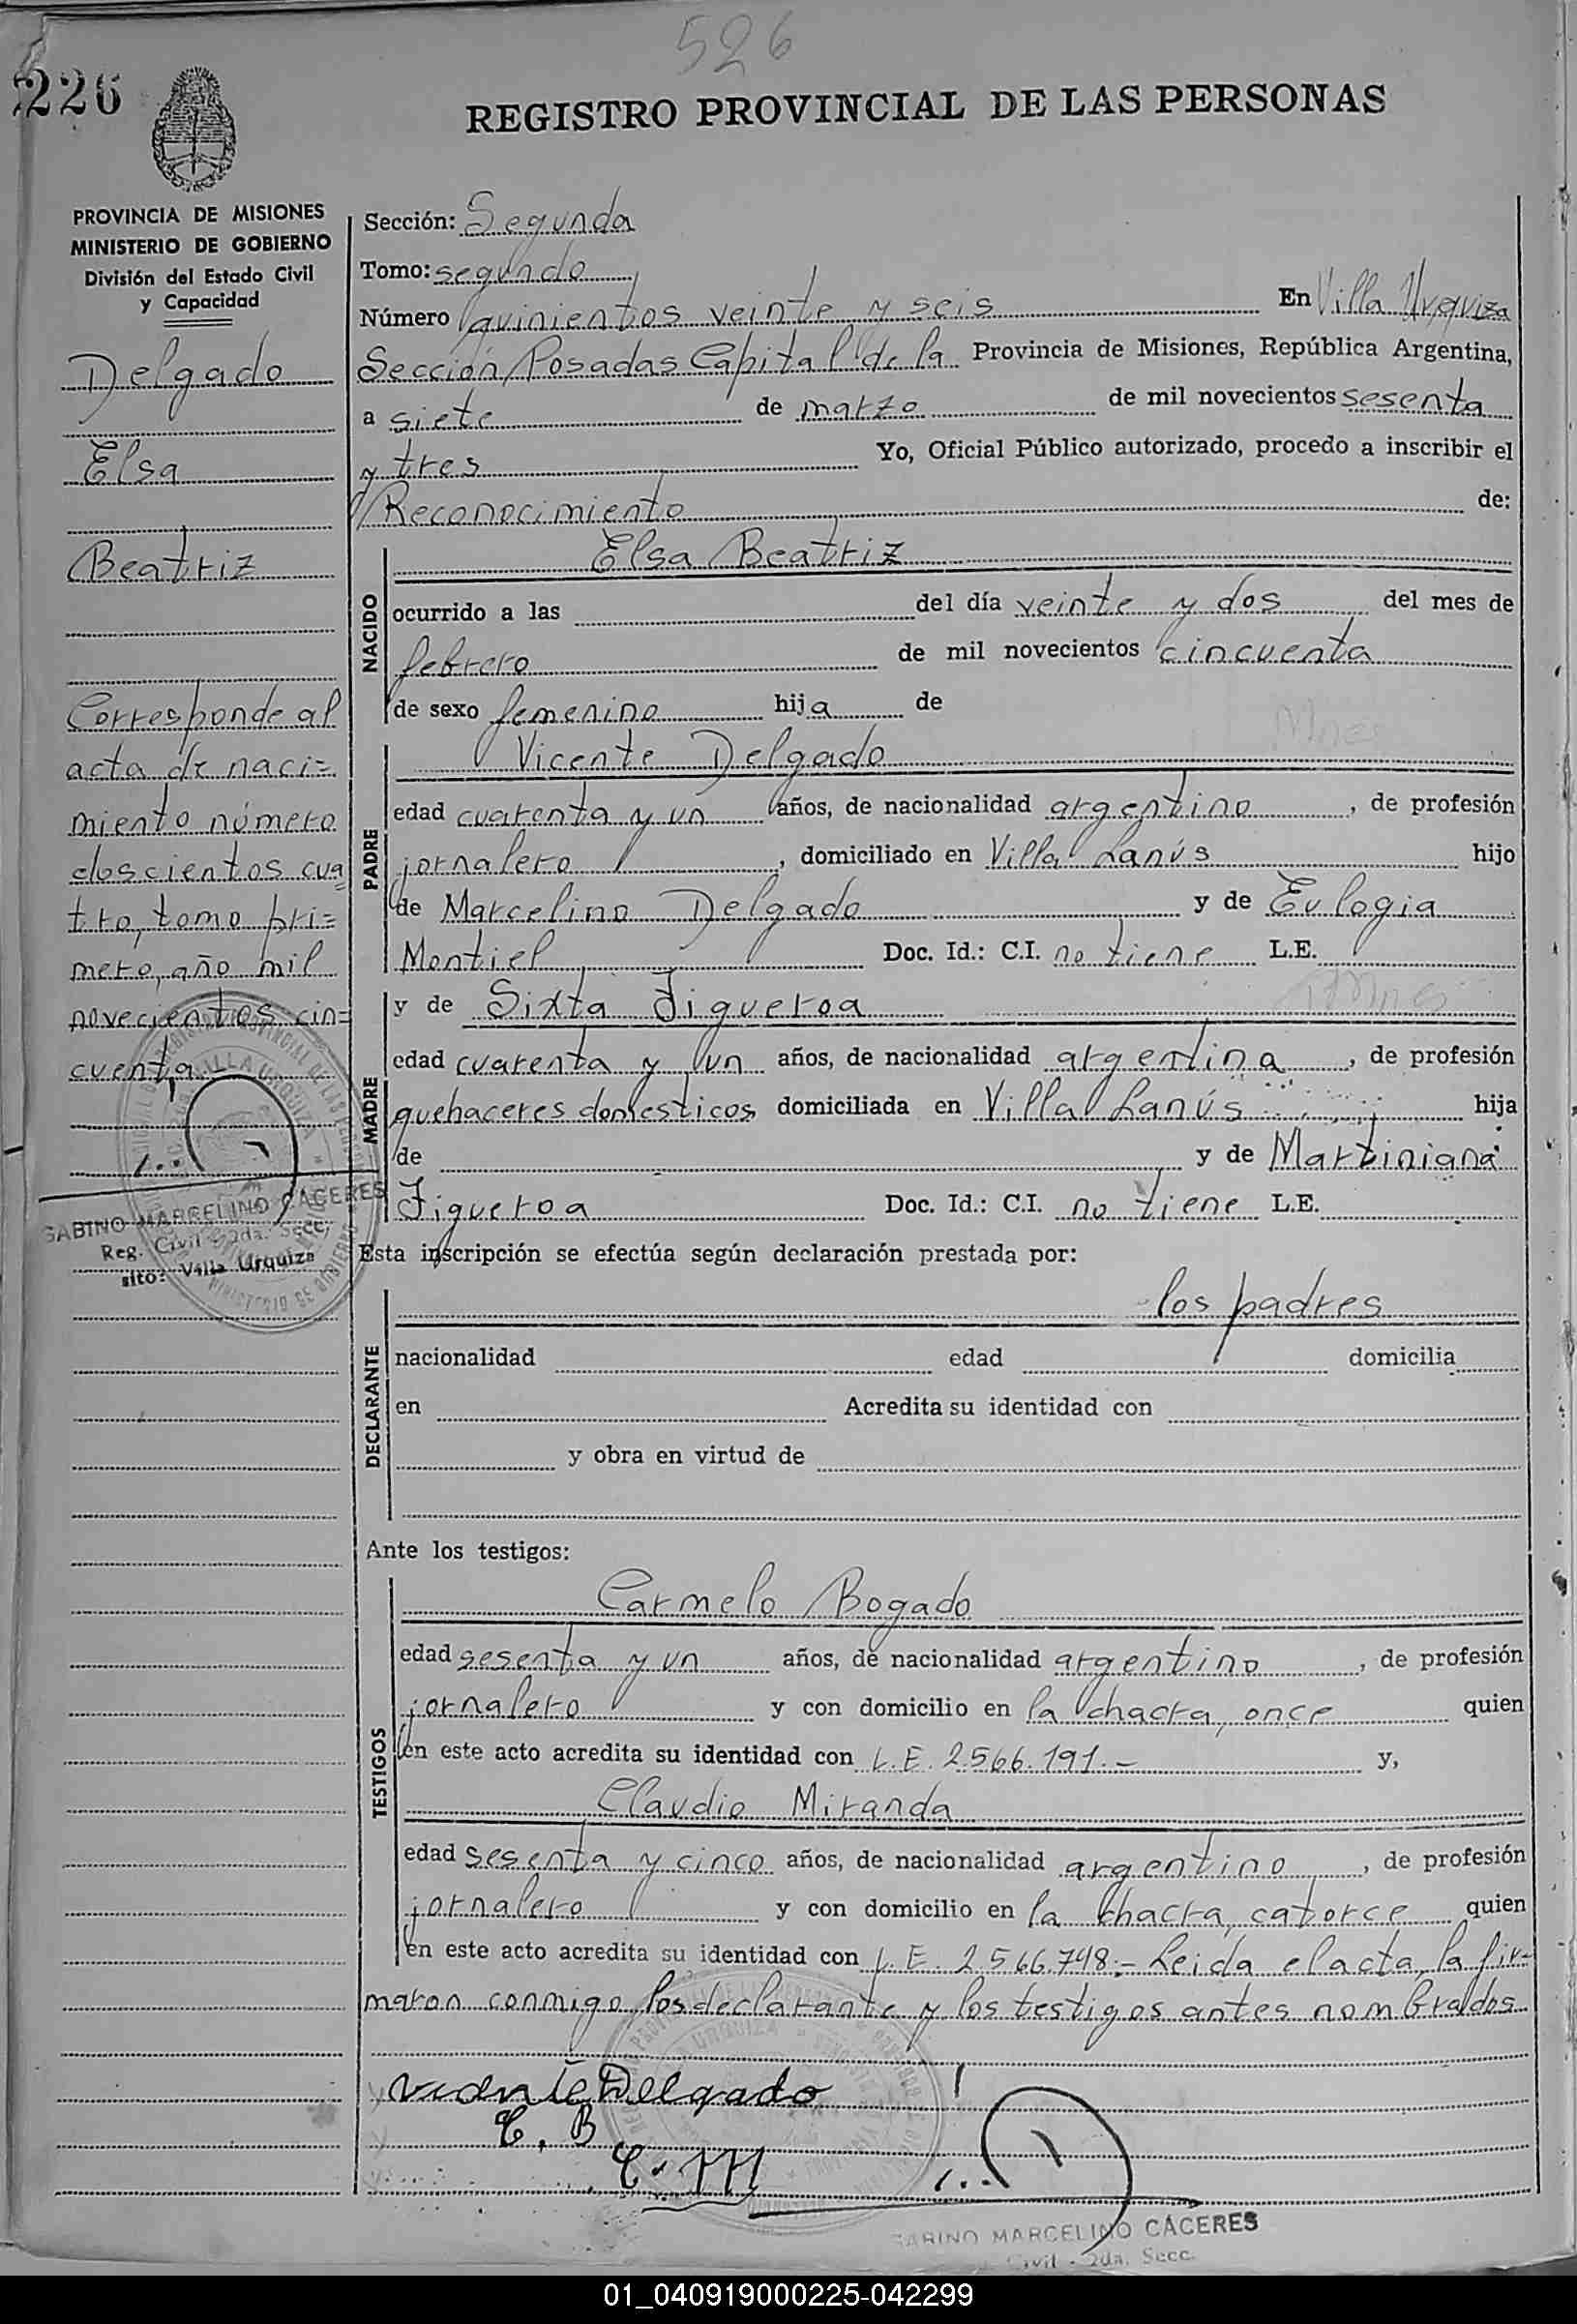 526
226
REGISTRO PROVINCIAL DE LAS PERSONAS
PROVINCIA DE MISIONES
MINISTERIO DE GOBIERNO
División del Estado Civil
y Capacidad
Delgado
Elsa
Beatriz
Corresponde al
acta de naci=
miento número
doscientos cua
tro, tomo pri=
mero, año mil
novecientos cin=
cuenta
SABINO MARCELINO CACERES
Reg. Civil - 2da. Secc.
sito: Villa Urquiza
Sección: Segunda
Tomo: segundo
Número quinientos veinte y seis En Villa Urquiza
Sección Posadas Capital de la Provincia de Misiones, República Argentina,
a siete de marzo de mil novecientos sesenta
y tres Yo, Oficial Público autorizado, procedo a inscribir el
Reconocimiento de:
NACIDO
Elsa Beatriz
ocurrido a las del día veinte y dos del mes de
febrero de mil novecientos cincuenta
de sexo femenino hija de
PADRE
Vicente Delgado
edad cuarenta y un años, de nacionalidad argentino, de profesión
jornalero, domiciliado en Villa Lanús hijo
de Marcelino Delgado y de Eulogia
Montiel Doc. Id.: C.I. no tiene L.E.
MADRE
y de Sixta Figueroa
edad cuarenta y un años, de nacionalidad argentina, de profesión
quehaceres domesticos domiciliada en Villa Lanús hija
de y de Martiniana
Figueroa Doc. Id.: C.I. no tiene L.E.
Esta inscripción se efectúa según declaración prestada por:
DECLARANTE
los padres
nacionalidad edad domicilia
en Acredita su identidad con
y obra en virtud de
Ante los testigos:
TESTIGOS
Carmelo Bogado
edad sesenta y un años, de nacionalidad argentino, de profesión
jornalero y con domicilio en la chacra, once quien
en este acto acredita su identidad con L.E. 2.566.191.- y,
Claudio Miranda
edad sesenta y cinco años, de nacionalidad argentino, de profesión
jornalero y con domicilio en la chacra, catorce quien
en este acto acredita su identidad con L.E. 2.566.748.- Leida el acta, la fir-
maron conmigo, los declarante y los testigos antes nombrados.
Vicente Delgado
C. B
C. M
SABINO MARCELINO CÁCERES
Civil - 2da. Secc.
01_040919000225-042299